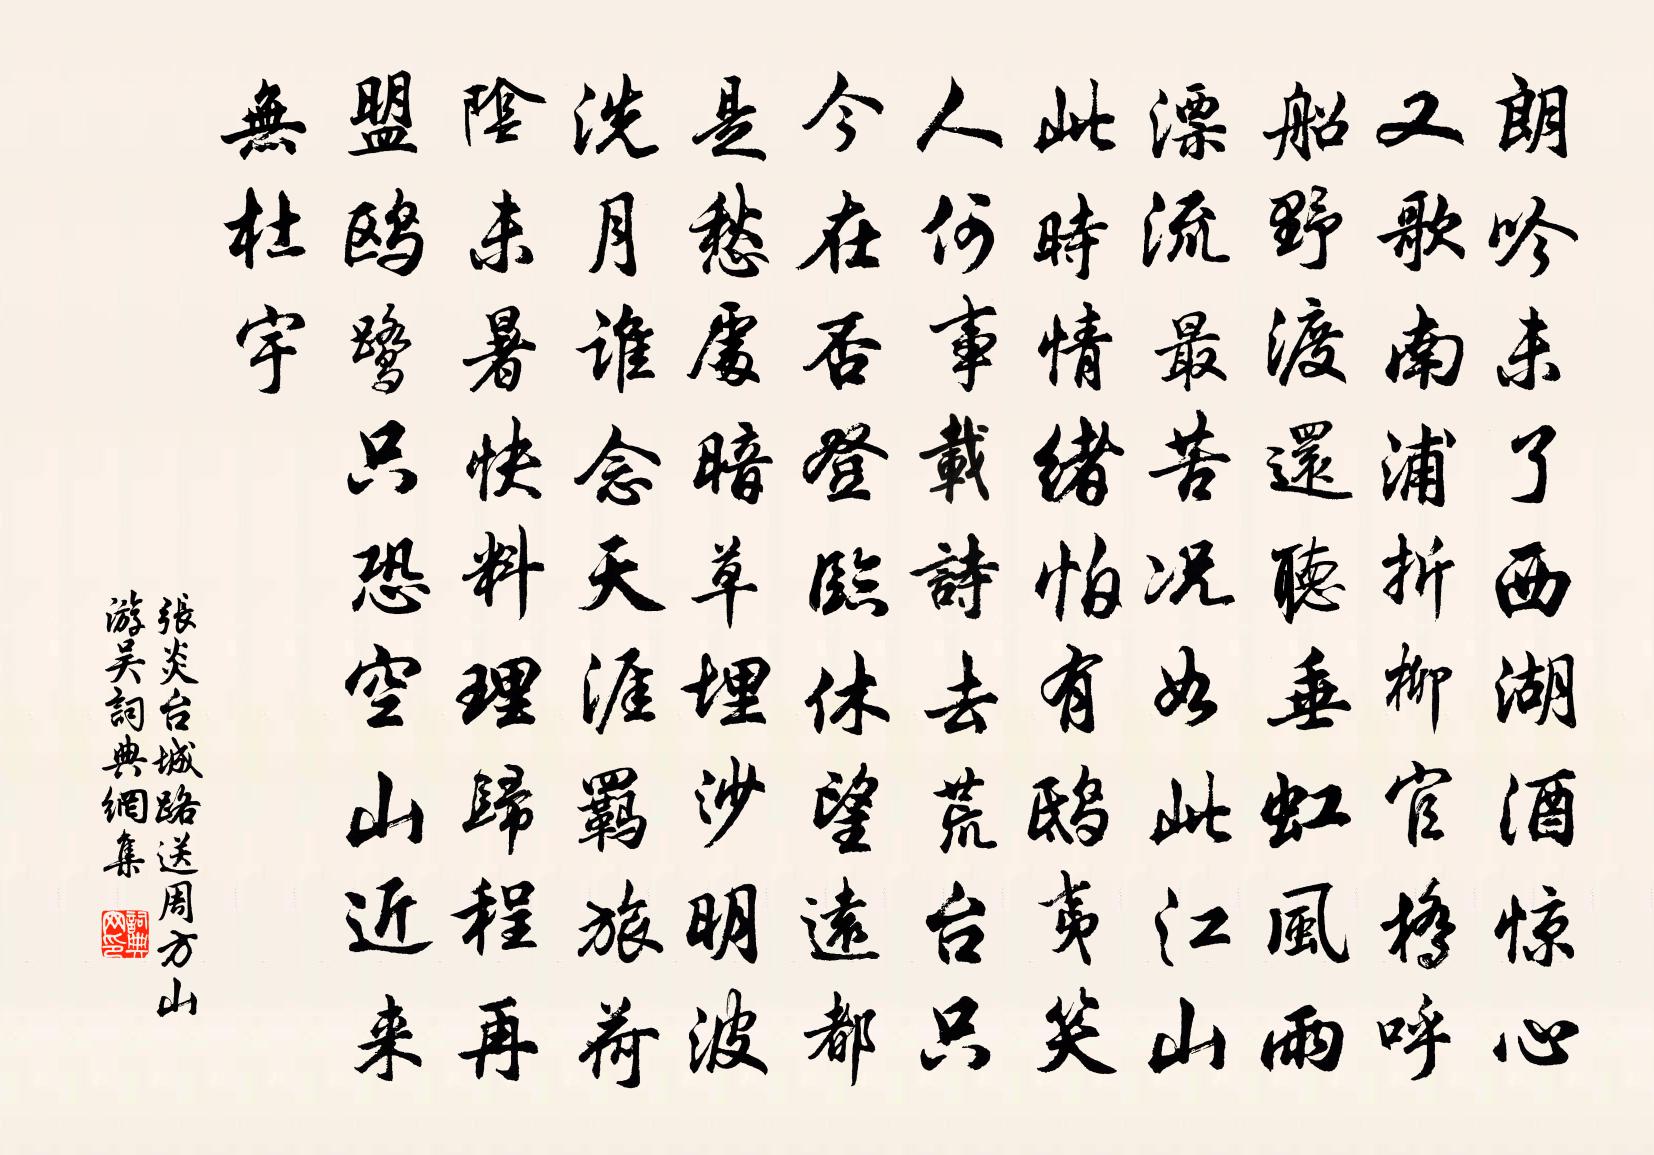 朗吟未了西湖酒惊心
又歌南浦折柳官橋呼
船野渡還聽垂虹風雨
漂流最苦况如此江山
此時情緒怕有鴟夷笑
人何事載詩去荒台只
今在否登臨休望遠都
是愁處暗草埋沙明波
洗月誰念天涯羈旅荷
陰未暑快料理歸程再
盟鷗鷺只恐空山近来
無杜宇
張炎台城路送周方山
游吴詞典網集
詞典网印